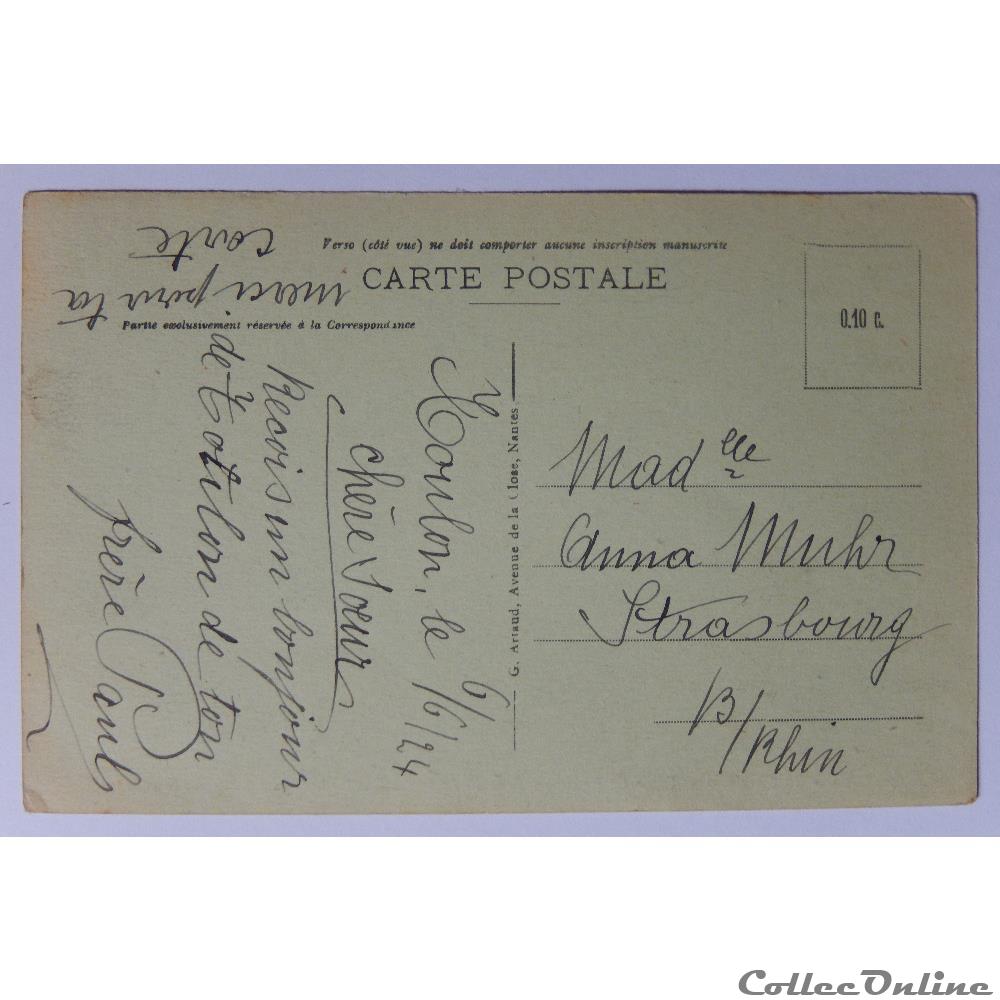 Verso (côté vue) ne doit comporter aucune inscription manuscrite
CARTE POSTALE
Partie exclusivement réservée à la Correspondance
0.10 c.
G. Artaud, Avenue de la Close, Nantes
Toulon, le 6/6/24
chère soeur
Recois un bonjour
de Toulon de ton
frère Paul
merci pour ta
carte
Mad elle
Anna Muhr
Strasbourg
B/Rhin
CollecOnline